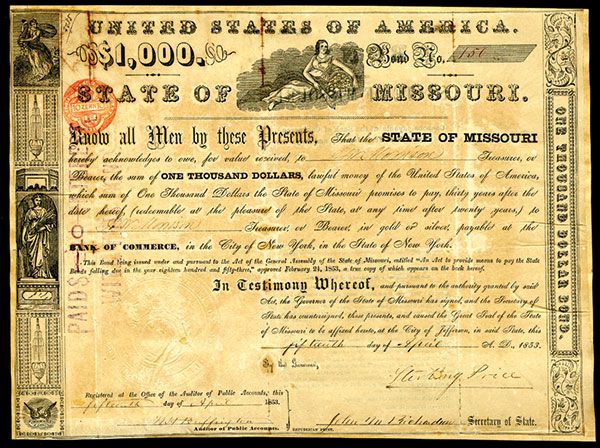 UNITED STATES OF AMERICA.
$1,000.
Bond No. 150
STATE OF MISSOURI.
Know all Men by these Presents, That the STATE OF MISSOURI
hereby acknowledges to owe, for value received, to Treasurer, or
Bearer, the sum of ONE THOUSAND DOLLARS, lawful money of the United States of America,
which sum of One Thousand Dollars the State of Missouri promises to pay, thirty years after the
date hereof, (redeemable at the pleasure of the State, at any time after twenty years,) to
Treasurer, or Bearer, in gold or silver, payable at the
BANK OF COMMERCE, in the City of New York, in the State of New York.
This Bond being issued under and pursuant to the Act of the General Assembly of the State of Missouri, entitled "An Act to provide means to pay the State
Bonds falling due in the year eighteen hundred and fifty-three," approved February 24, 1853, a true copy of which appears on the back hereof.
In Testimony Whereof, and pursuant to the authority granted by said
Act, the Governor of the State of Missouri has signed, and the Secretary of
State has countersigned, these presents, and caused the Great Seal of the State
of Missouri to be affixed hereto, at the City of Jefferson, in said State, this
fifteenth day of April A. D., 1853.
By the Governor,
Sterling Price
Registered at the Office of the Auditor of Public Accounts, this
fifteenth day of April 1853.
Auditor of Public Accounts.
REPUBLICAN PRINT.
John M Richardson Secretary of State.
ONE THOUSAND DOLLAR BOND.
PAID